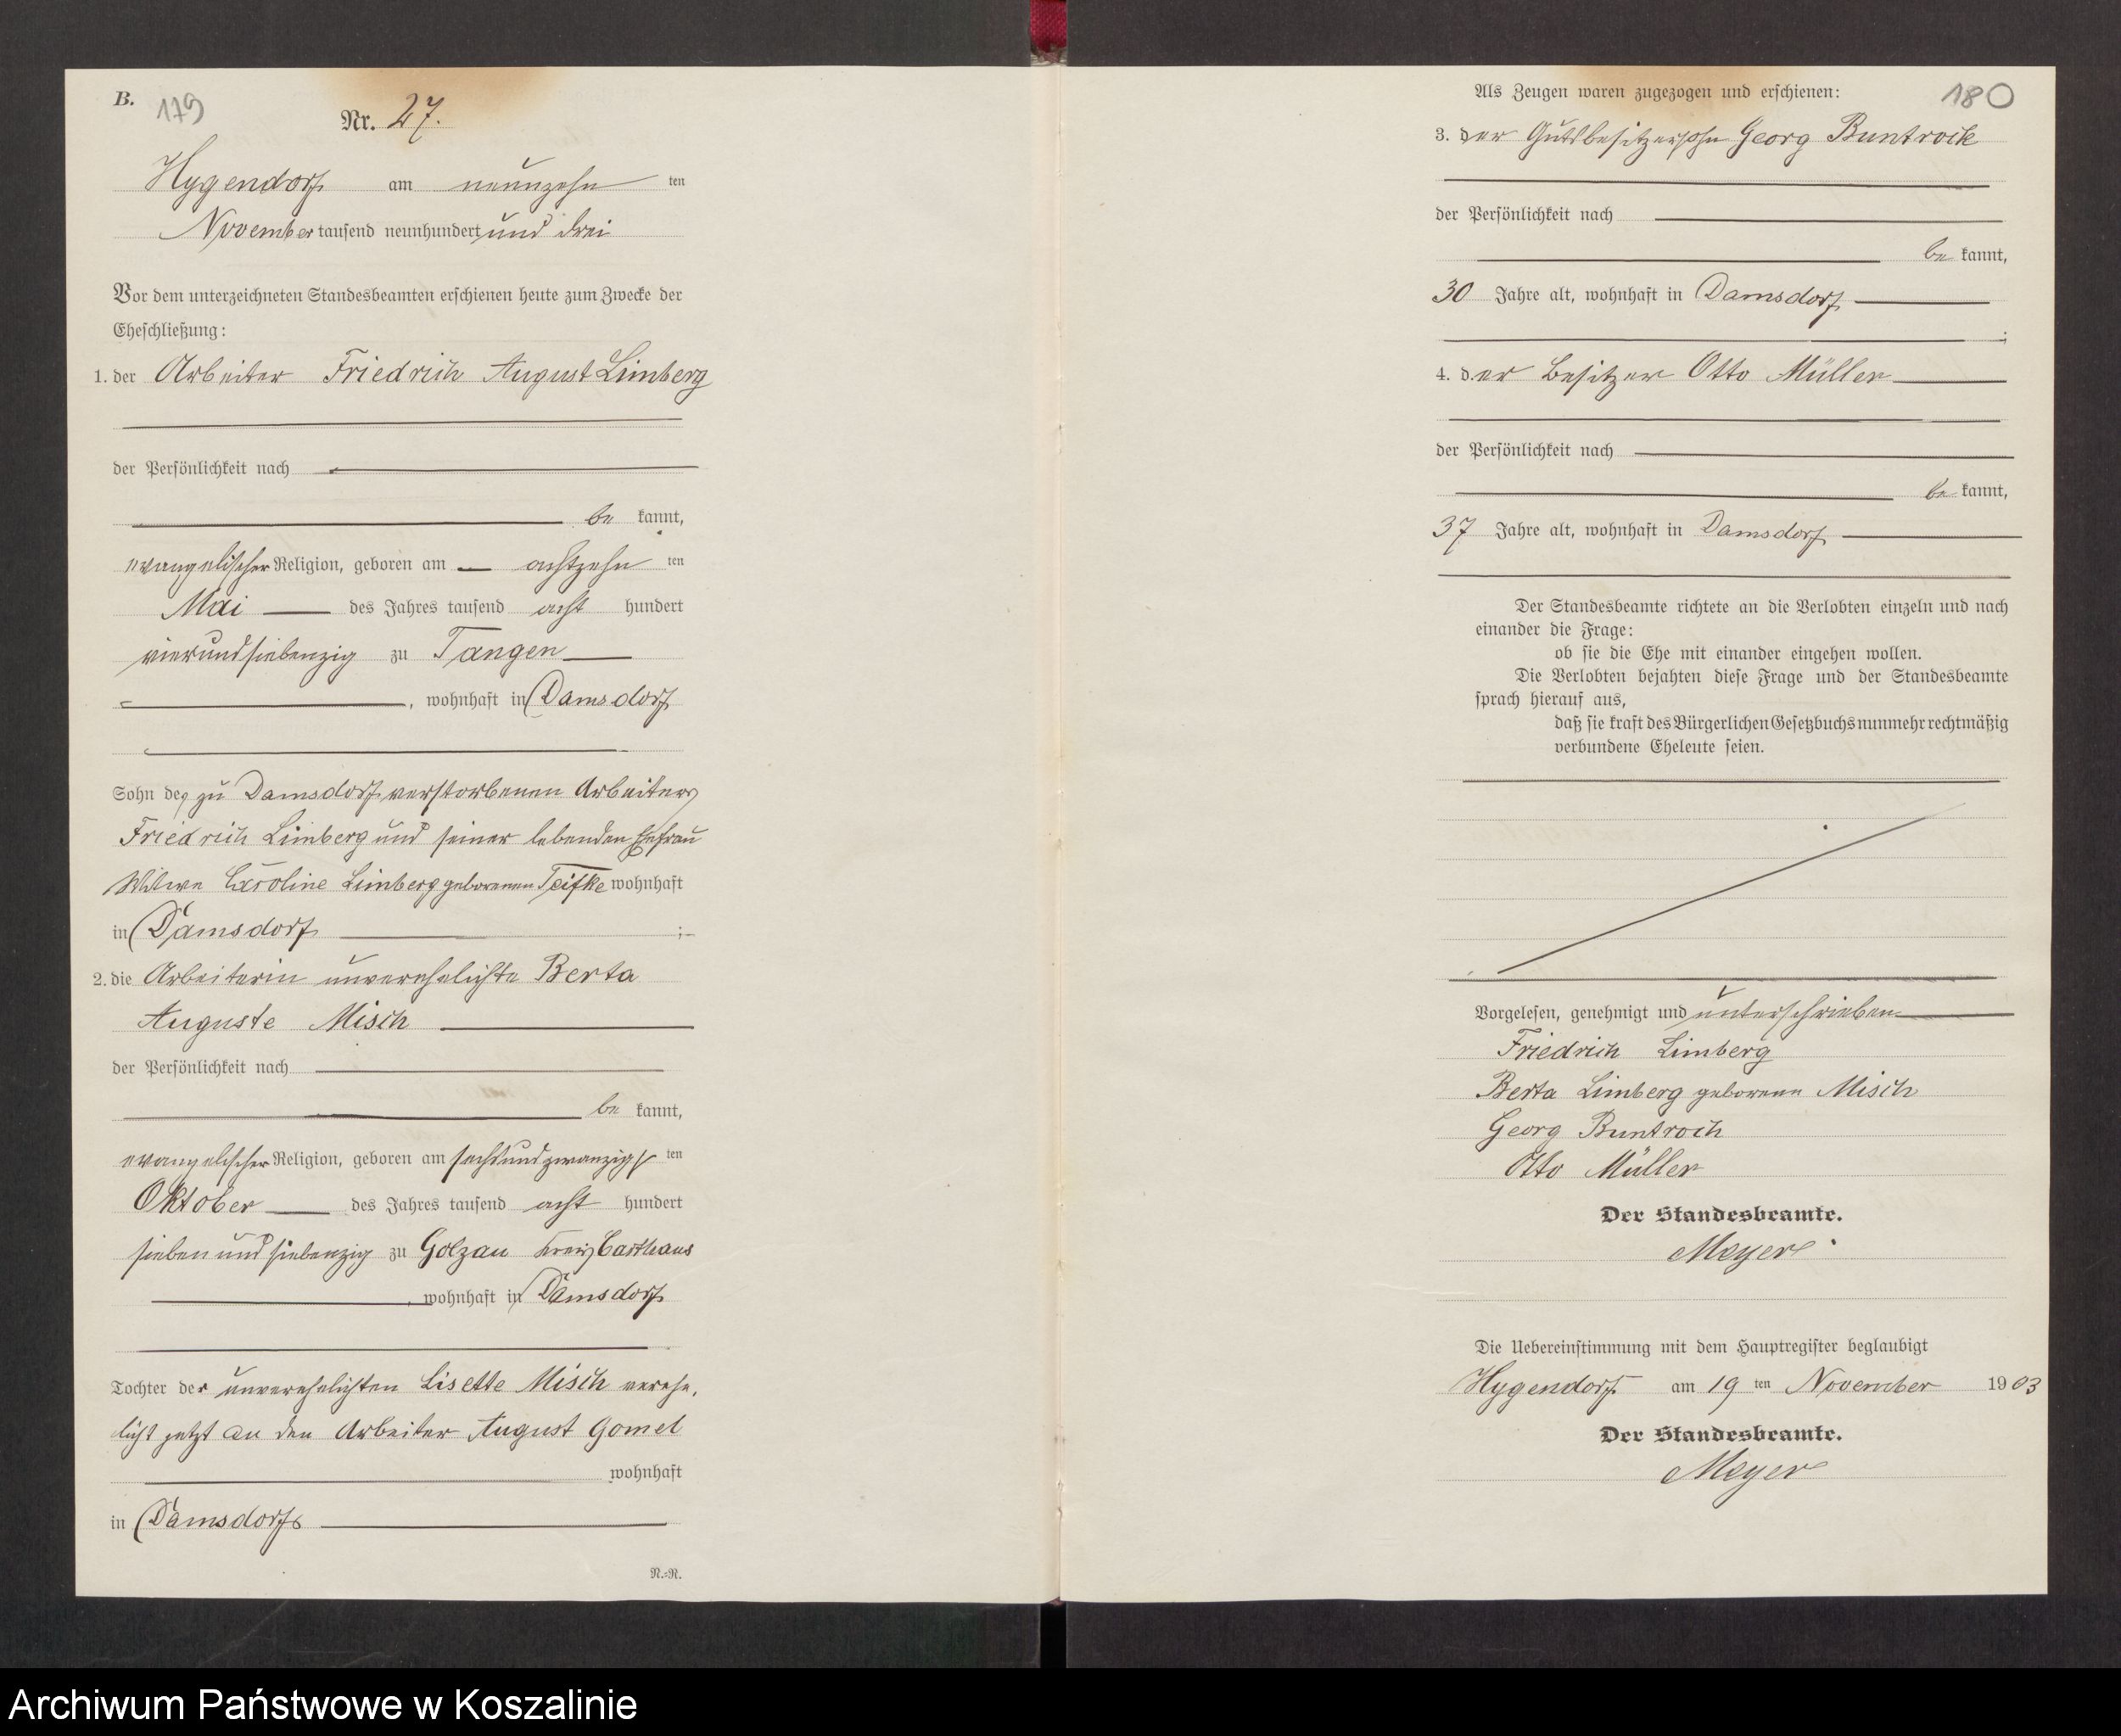 B.
179
Nr. 27.
Hygendorf am neunzehn ten
November tausend neunhundert und drei
Vor dem unterzeichneten Standesbeamten erschienen heute zum Zwecke der
Eheschließung:
1. der Arbeiter Friedrich August Limberg
der Persönlichkeit nach
be kannt,
evangelischer Religion, geboren am achtzehn ten
Mai des Jahres tausend acht hundert
vierundsiebenzig zu Tangen
, wohnhaft in Damsdorf
Sohn des zu Damsdorf verstorbenen Arbeiters
Friedrich Limberg und seiner lebenden Ehefrau
Witwe Caroline Limberg geborenen Teifke wohnhaft
in Damsdorf ;
2. die Arbeiterin unverehelichte Berta
Auguste Misch
der Persönlichkeit nach
be kannt,
evangelischer Religion, geboren am sechsundzwanzigs ten
Oktober des Jahres tausend acht hundert
sieben und siebenzig zu Golzau Kreis Carthaus
, wohnhaft in Damsdorf
Tochter der unverehelichten Lisette Misch verehe-
licht jetzt an den Arbeiter August Gomel
wohnhaft
in Damsdorf
N.=N.
180
Als Zeugen waren zugezogen und erschienen:
3. der Gutsbesitzersohn Georg Buntrock
der Persönlichkeit nach
be kannt,
30 Jahre alt, wohnhaft in Damsdorf
;
4. der Besitzer Otto Müller
der Persönlichkeit nach
be kannt,
37 Jahre alt, wohnhaft in Damsdorf
Der Standesbeamte richtete an die Verlobten einzeln und nach
einander die Frage:
ob sie die Ehe mit einander eingehen wollen.
Die Verlobten bejahten diese Frage und der Standesbeamte
sprach hierauf aus,
daß sie kraft des Bürgerlichen Gesetzbuchs nunmehr rechtmäßig
verbundene Eheleute seien.
Vorgelesen, genehmigt und unterschrieben
Friedrich Limberg
Berta Limberg geborene Misch
Georg Buntrock
Otto Müller
Der Standesbeamte.
Meyer
Die Uebereinstimmung mit dem Hauptregister beglaubigt
Hygendorf am 19 ten November 1903
Der Standesbeamte.
Meyer
Archiwum Państwowe w Koszalinie